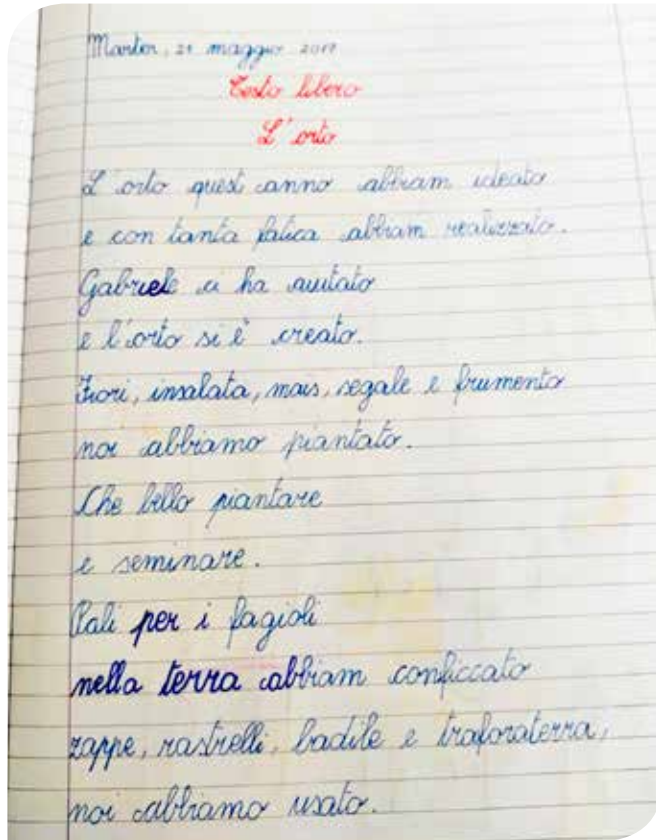 Marter, 21 maggio 2019
Testo libero
L'orto
L'orto quest'anno abbiam ideato
e con tanta fatica abbiam realizzato.
Gabriele ci ha aiutato
e l'orto si è creato.
Fiori, insalata, mais, segale e frumento
noi abbiamo piantato.
Che bello piantare
e seminare.
Pali per i fagioli
nella terra abbiam conficcato
zappe, rastrelli, badile e traforaterra,
noi abbiamo usato.